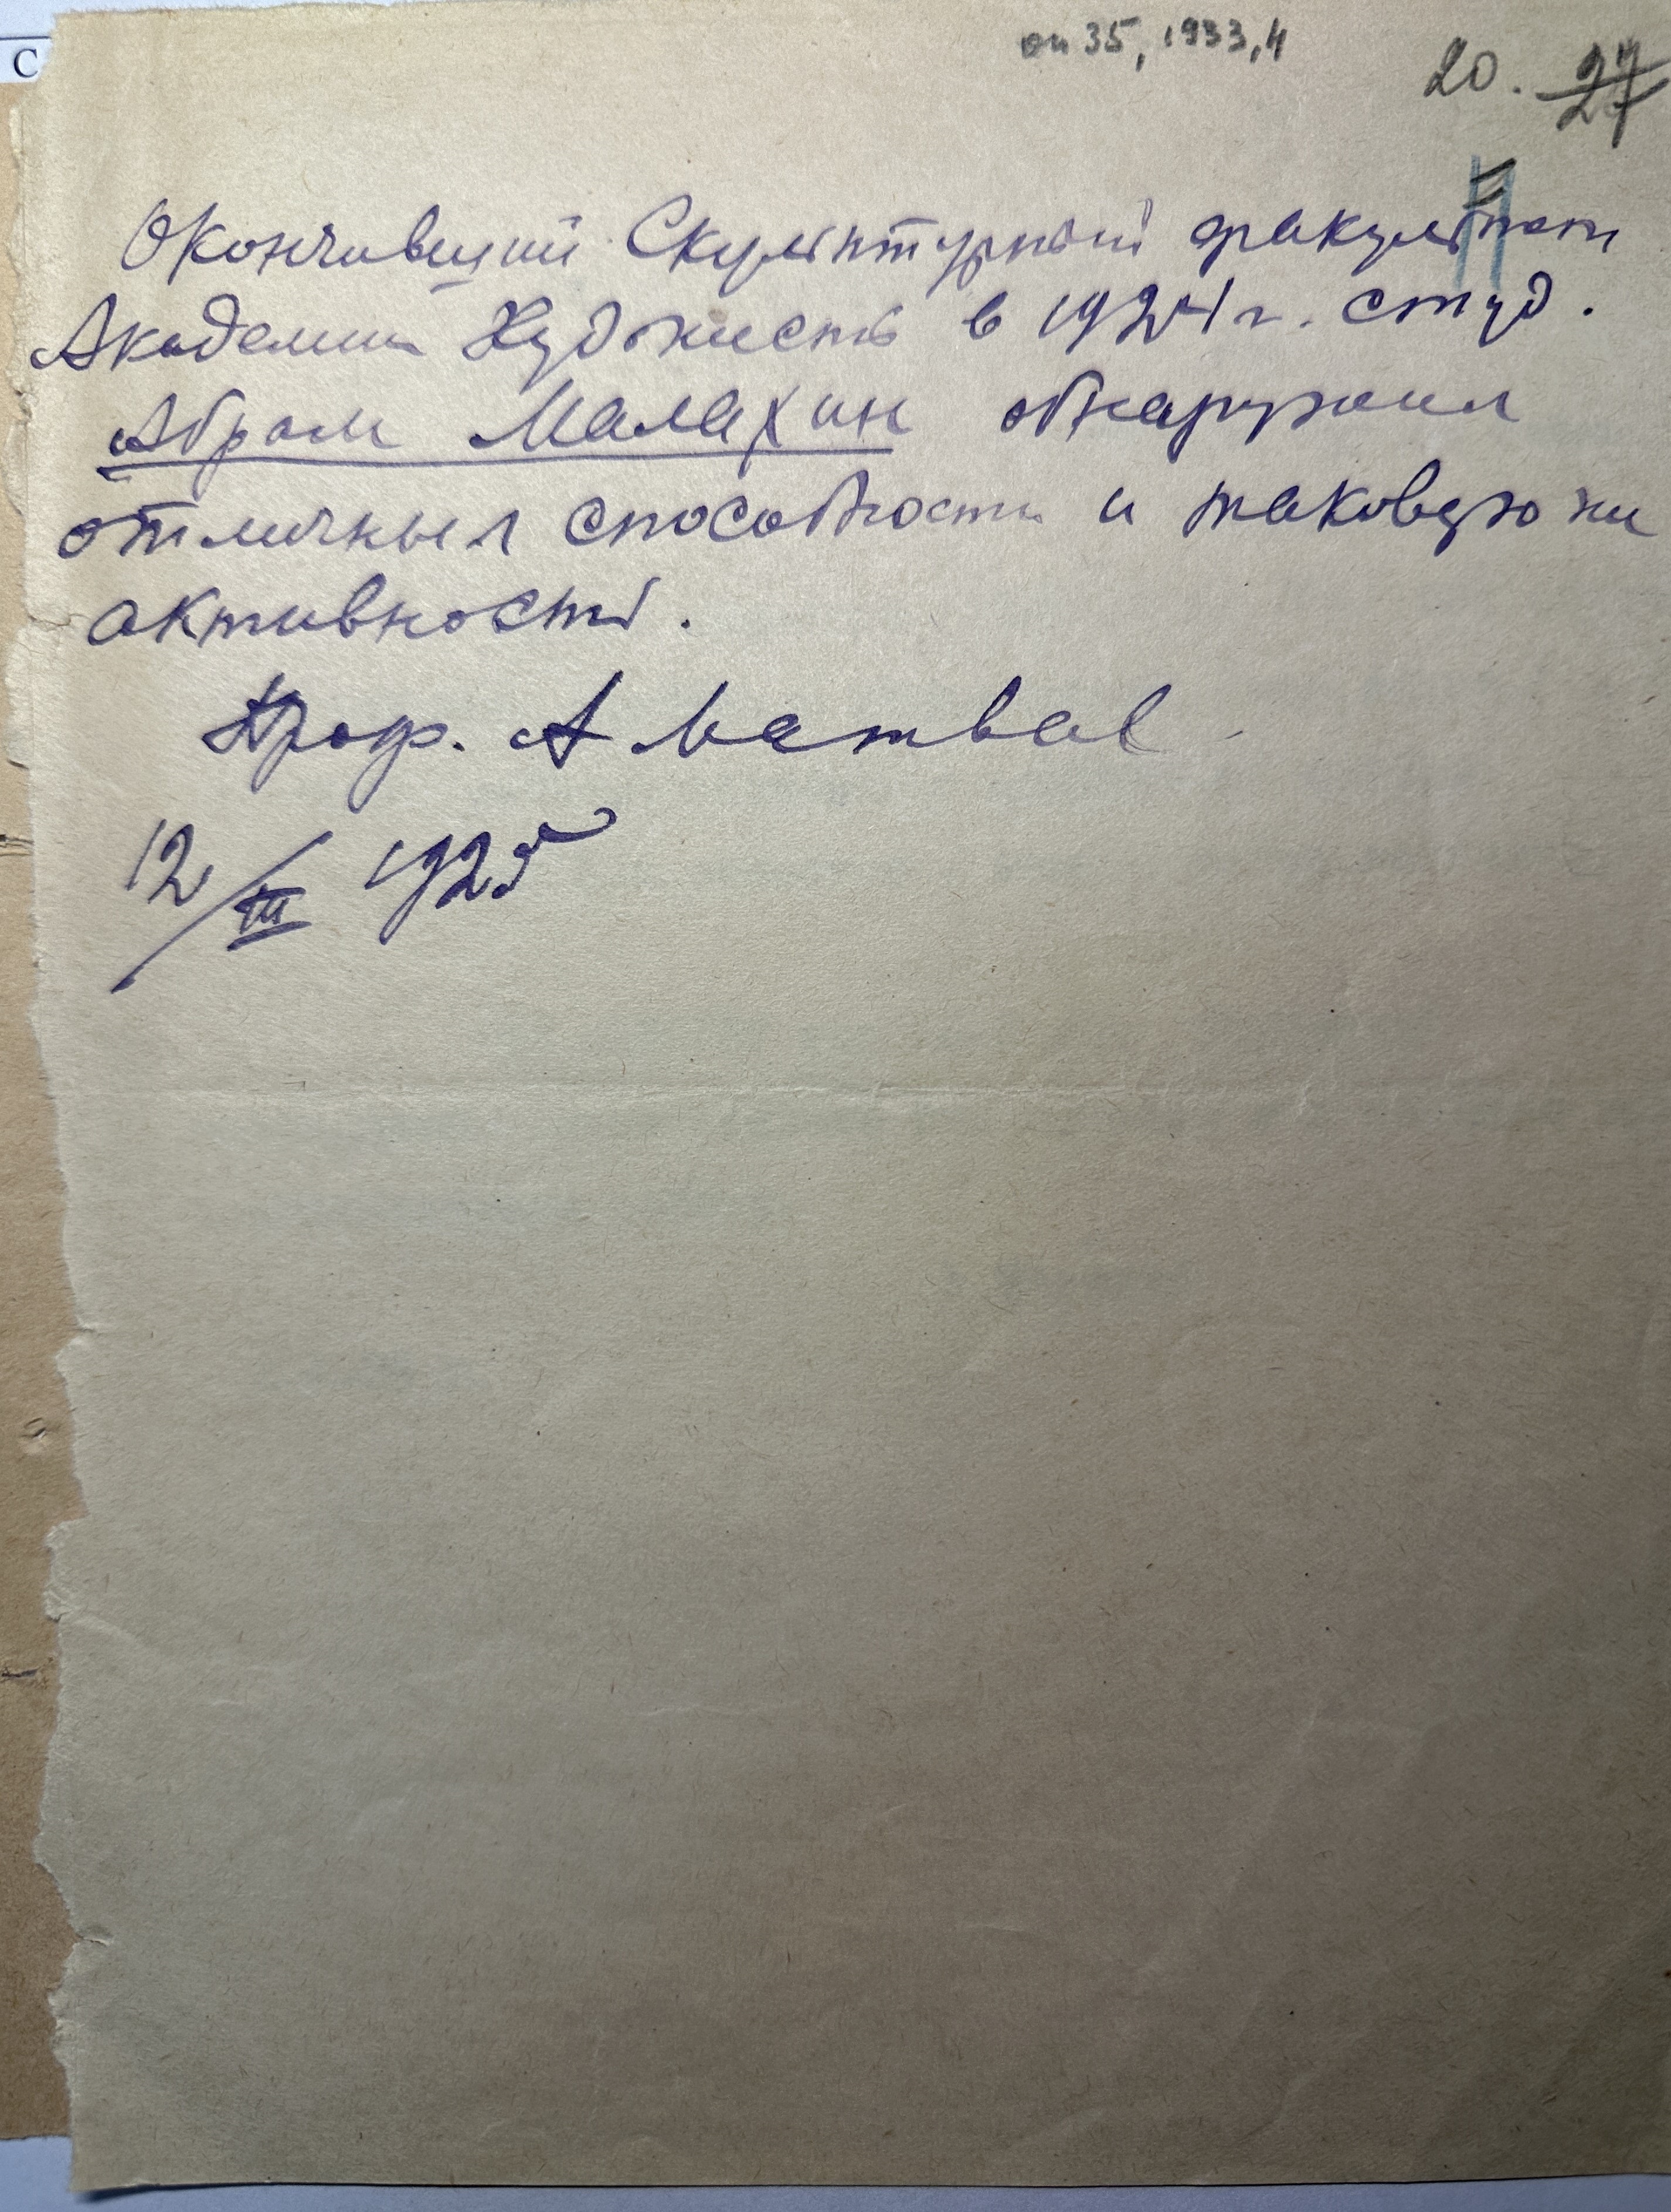 С
оп 35, 1933, 4
20. 27
Окончивший Скульптурный факультет
Академии Художеств в 1924 г. студ.
Абрам Малахин обнаружил
отличныя способности и таковую же
активность.
Проф. А Матвеев
12/III 1925